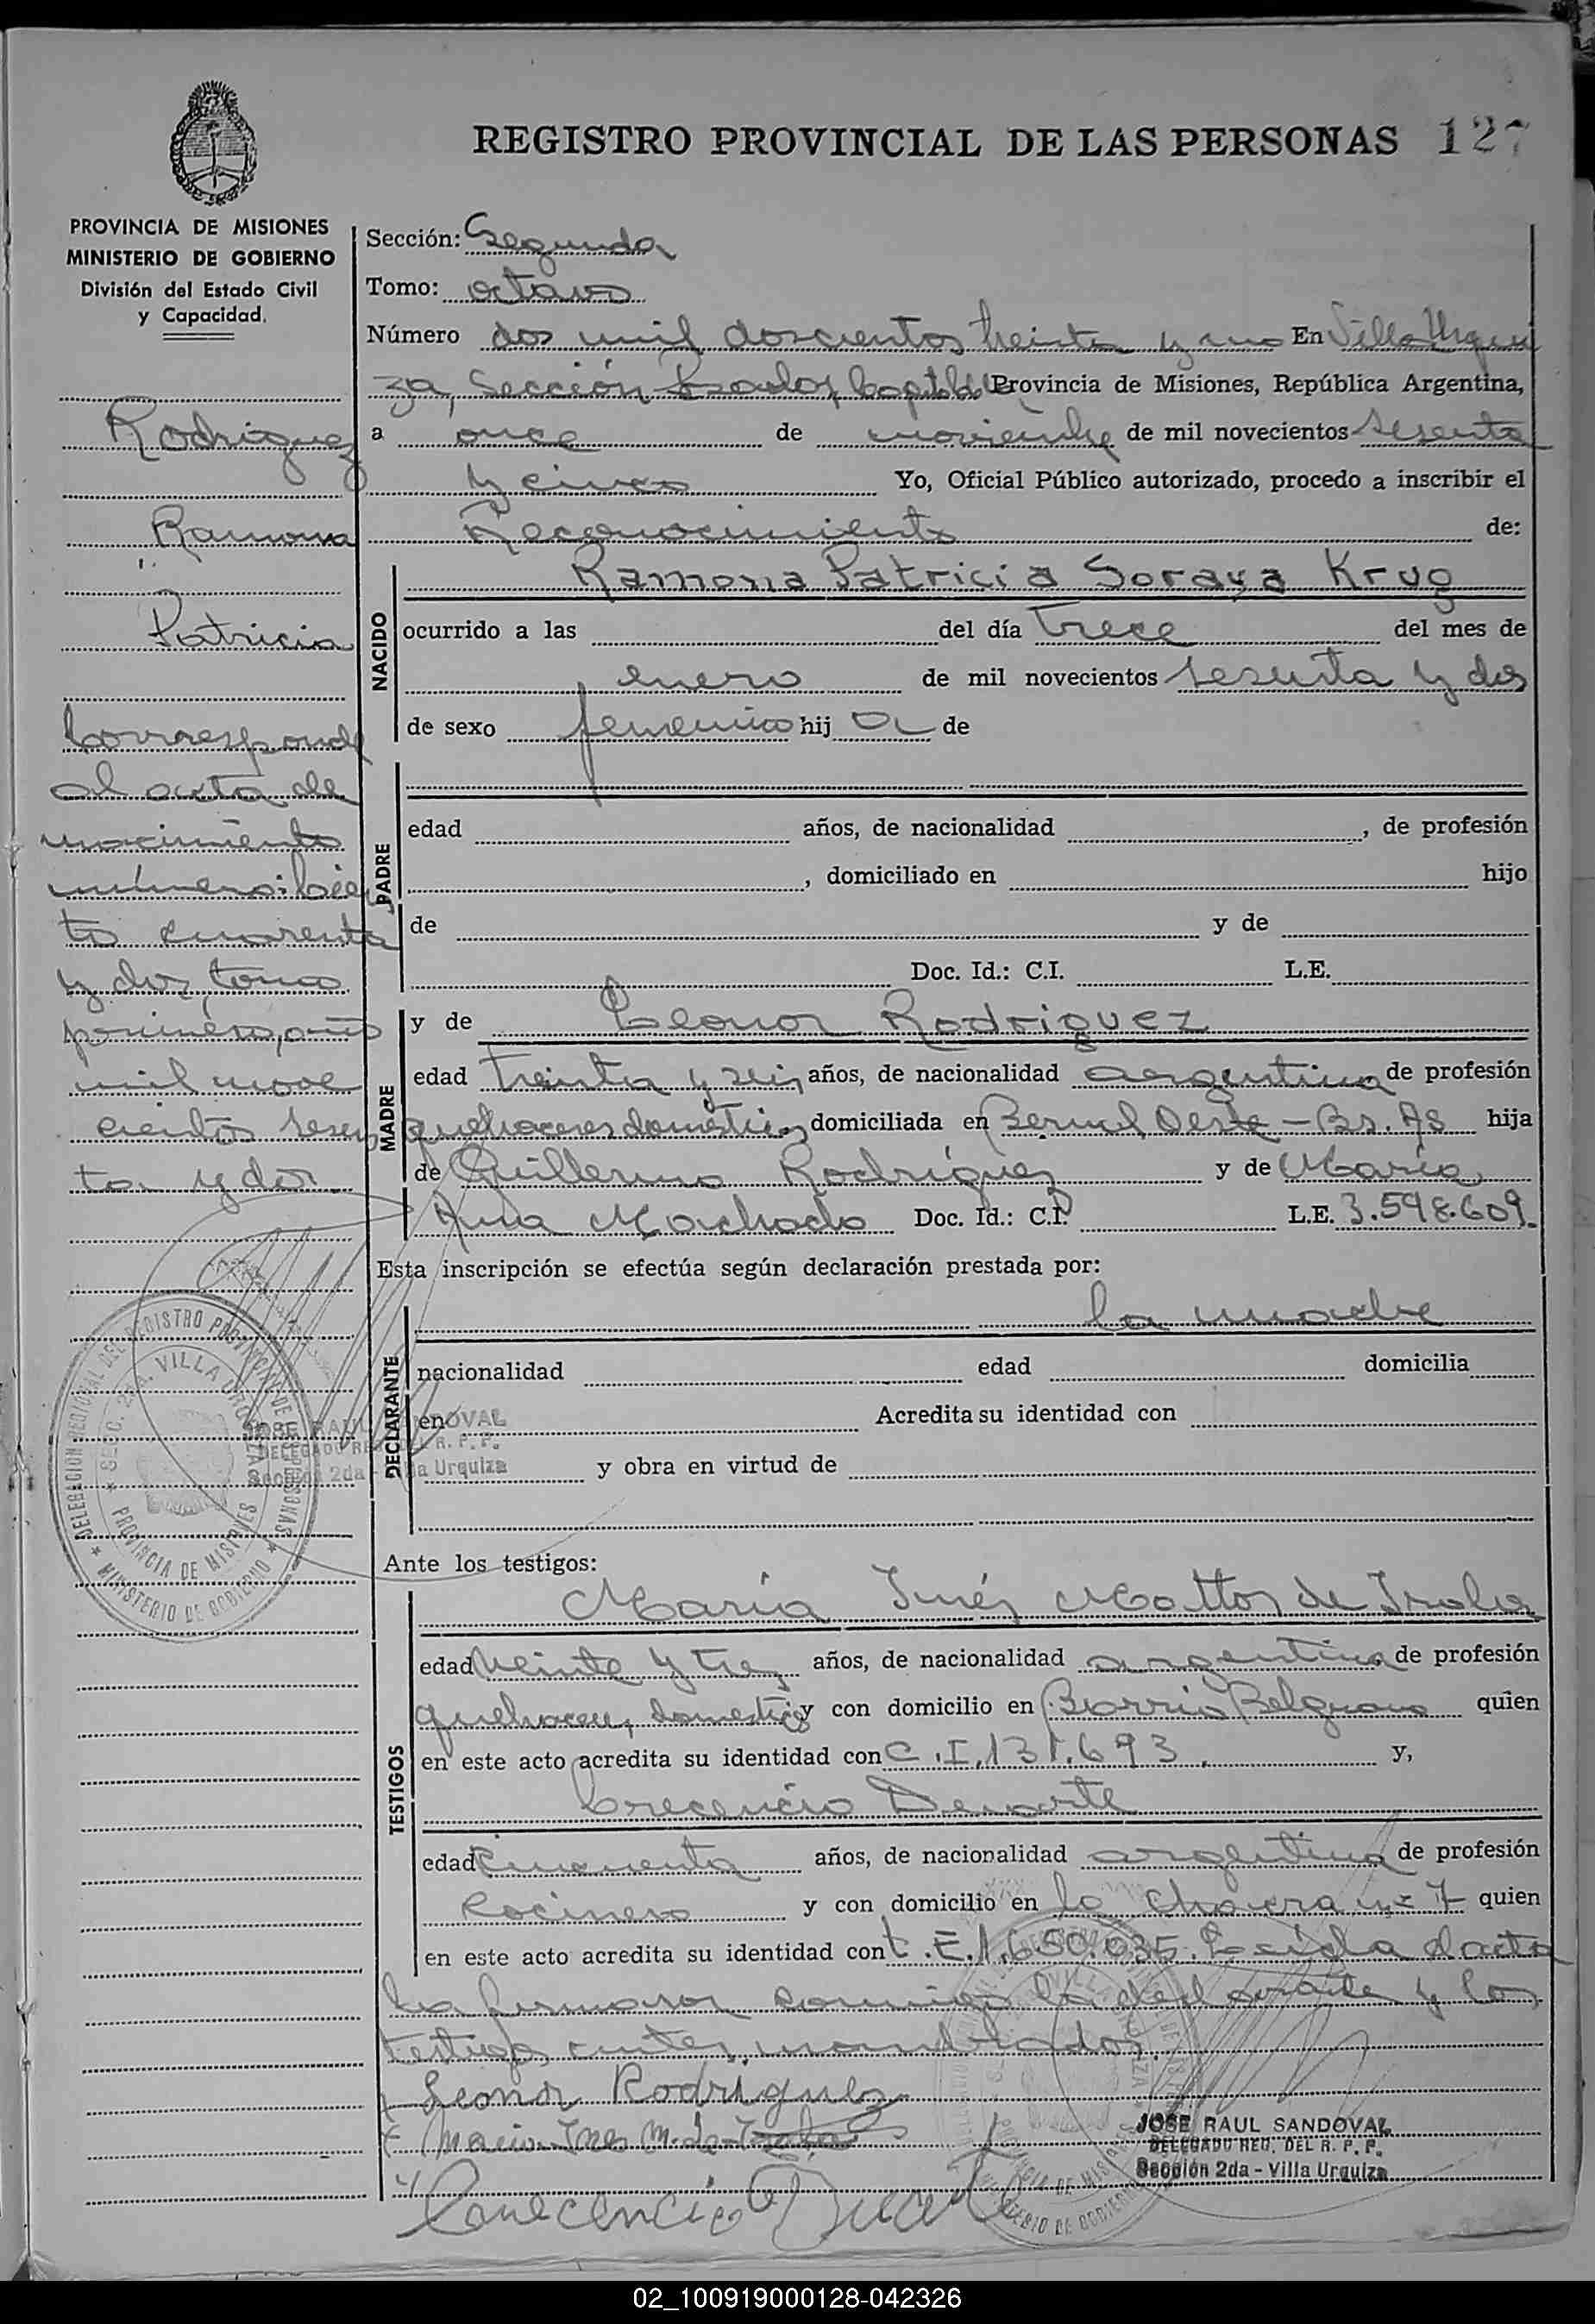 REGISTRO PROVINCIAL DE LAS PERSONAS 127
PROVINCIA DE MISIONES
MINISTERIO DE GOBIERNO
División del Estado Civil
y Capacidad.
Rodriguez
Ramona
Patricia
Corresponde
al acta de
nacimiento
número: Cien
to cuarenta
y dos, tomo
primero, año
mil nove
cientos sesen
ta y dos
Sección: Segunda
Tomo: octavo
Número dos mil doscientos treinta y uno En Villa Urqui
za, Sección Posadas, Capital de Provincia de Misiones, República Argentina,
a once de noviembre de mil novecientos sesenta
y cinco Yo, Oficial Público autorizado, procedo a inscribir el
Reconocimiento de:
NACIDO
Ramona Patricia Soraya Krug
ocurrido a las del día trece del mes de
enero de mil novecientos sesenta y dos
de sexo femenino hij a de
PADRE
edad años, de nacionalidad , de profesión
, domiciliado en hijo
de y de
Doc. Id.: C.I. L.E.
MADRE
y de Leonor Rodriguez
edad treinta y seis años, de nacionalidad argentina de profesión
quehaceres domésticos domiciliada en Bernal Oeste - Bs. As hija
de Guillermo Rodríguez y de María
Ana Machado Doc. Id.: C.I. L.E. 3.598.609.
Esta inscripción se efectúa según declaración prestada por:
DECLARANTE
la madre
nacionalidad edad domicilia
en Acredita su identidad con
y obra en virtud de
DELEGACION REGIONAL DEL REGISTRO PROVINCIAL DE LAS PERSONAS
SEC. 2DA. VILLA URQUIZA
PROVINCIA DE MISIONES
MINISTERIO DE GOBIERNO
JOSE RAUL SANDOVAL
DELEGADO REG. DEL R. P. P.
Sección 2da - Villa Urquiza
Ante los testigos:
TESTIGOS
María Inés Mattos de
edad veinte y tres años, de nacionalidad argentina de profesión
quehaceres domésticos y con domicilio en Barrio Belgrano quien
en este acto acredita su identidad con C.I. 131.693. y,
Crecencio Duarte
edad Cincuenta años, de nacionalidad argentina de profesión
Cocinero y con domicilio en la Chacra nº 7 quien
en este acto acredita su identidad con L.E. 1.650.035. Leída el acta
la firmaron conmigo la declarante y los
testigos antes nombrados.
Leonor Rodriguez
Maria Ines M. de
JOSE RAUL SANDOVAL
DELEGADO REG. DEL R. P. P.
Sección 2da - Villa Urquiza
02_100919000128-042326